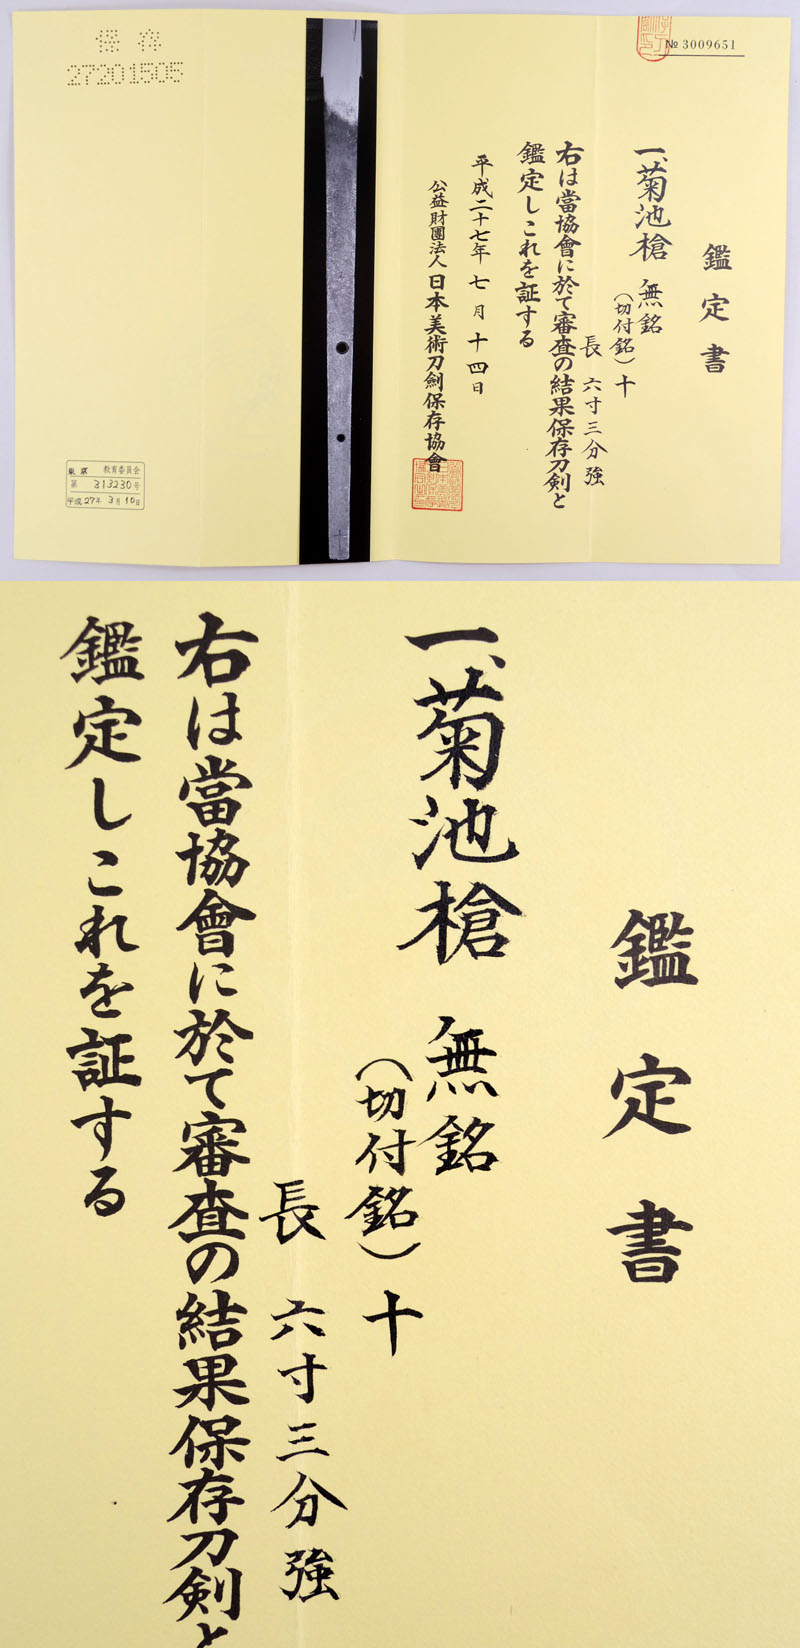 保存
27201505
№ 3009651
鑑定書
一、菊池槍 無銘
(切付銘) 十
長 六寸三分強
右は當協會に於て審査の結果保存刀剣と
鑑定しこれを証する
平成二十七年 七月 十四日
公益財團法人 日本美術刀劍保存協會
東京 教育委員会
第 313230号
平成27年 3月 10日
鑑定書
一、菊池槍 無銘
(切付銘) 十
長 六寸三分強
右は當協會に於て審査の結果保存刀剣と
鑑定しこれを証する